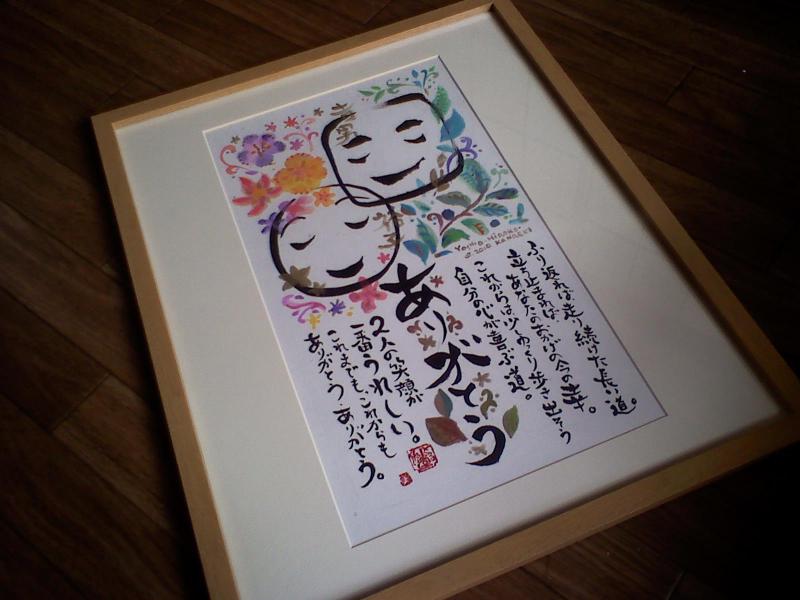 ふり返れば、走り続けた長い道。
立ち止まれば、あなたのおかげの今の幸。
これからは少しゆっくり歩き出そう
自分の心が喜ぶ道。
ありがとう
2人の笑顔が
一番うれしい。
これまでも、これからも
ありがとう、ありがとう。